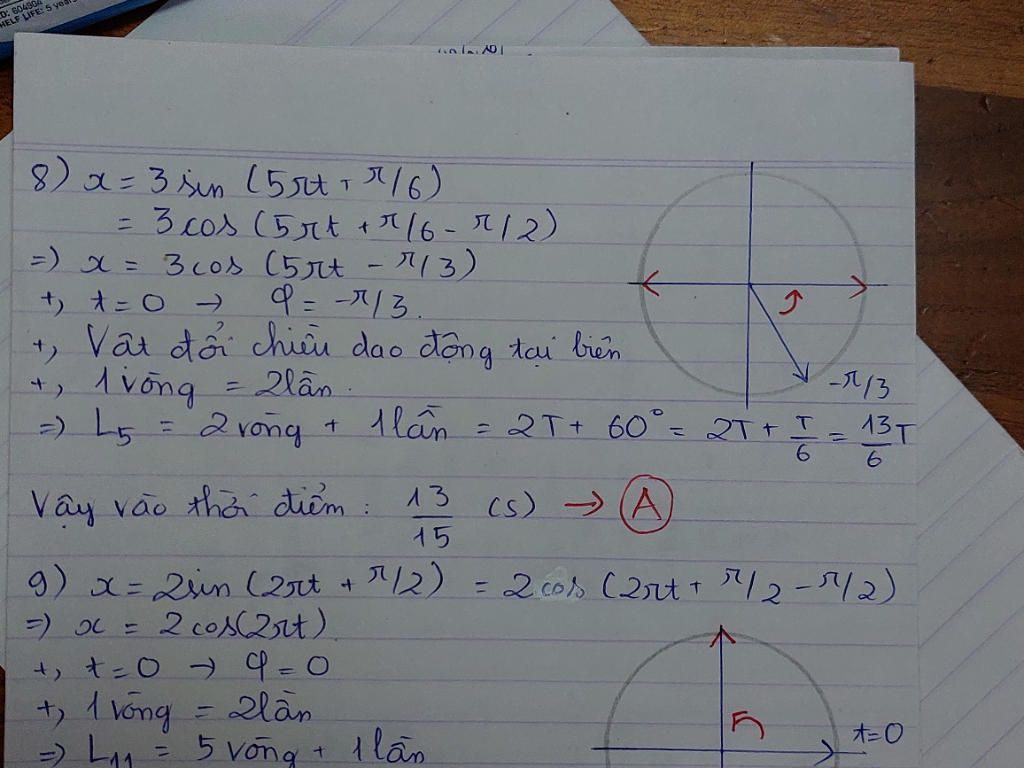 D: 604904
HELF LIFE: 5 years
8) x = 3 sin (5πt + π/6)
= 3 cos (5πt + π/6 - π/2)
=) x = 3 cos (5πt - π/3)
+, t = 0 → φ = -π/3.
+, Vật đổi chiều dao động tại biên
+, 1 vòng = 2 lần.
-π/3
=) L5 = 2 vòng + 1 lần = 2T + 60° = 2T + T/6 = 13/6 T
Vậy vào thời điểm : 13/15 (s) → A
9) x = 2 sin (2πt + π/2) = 2 cos (2πt + π/2 - π/2)
=) x = 2 cos(2πt)
+, t = 0 → φ = 0
+, 1 vòng = 2 lần
t = 0
=) L11 = 5 vòng + 1 lần